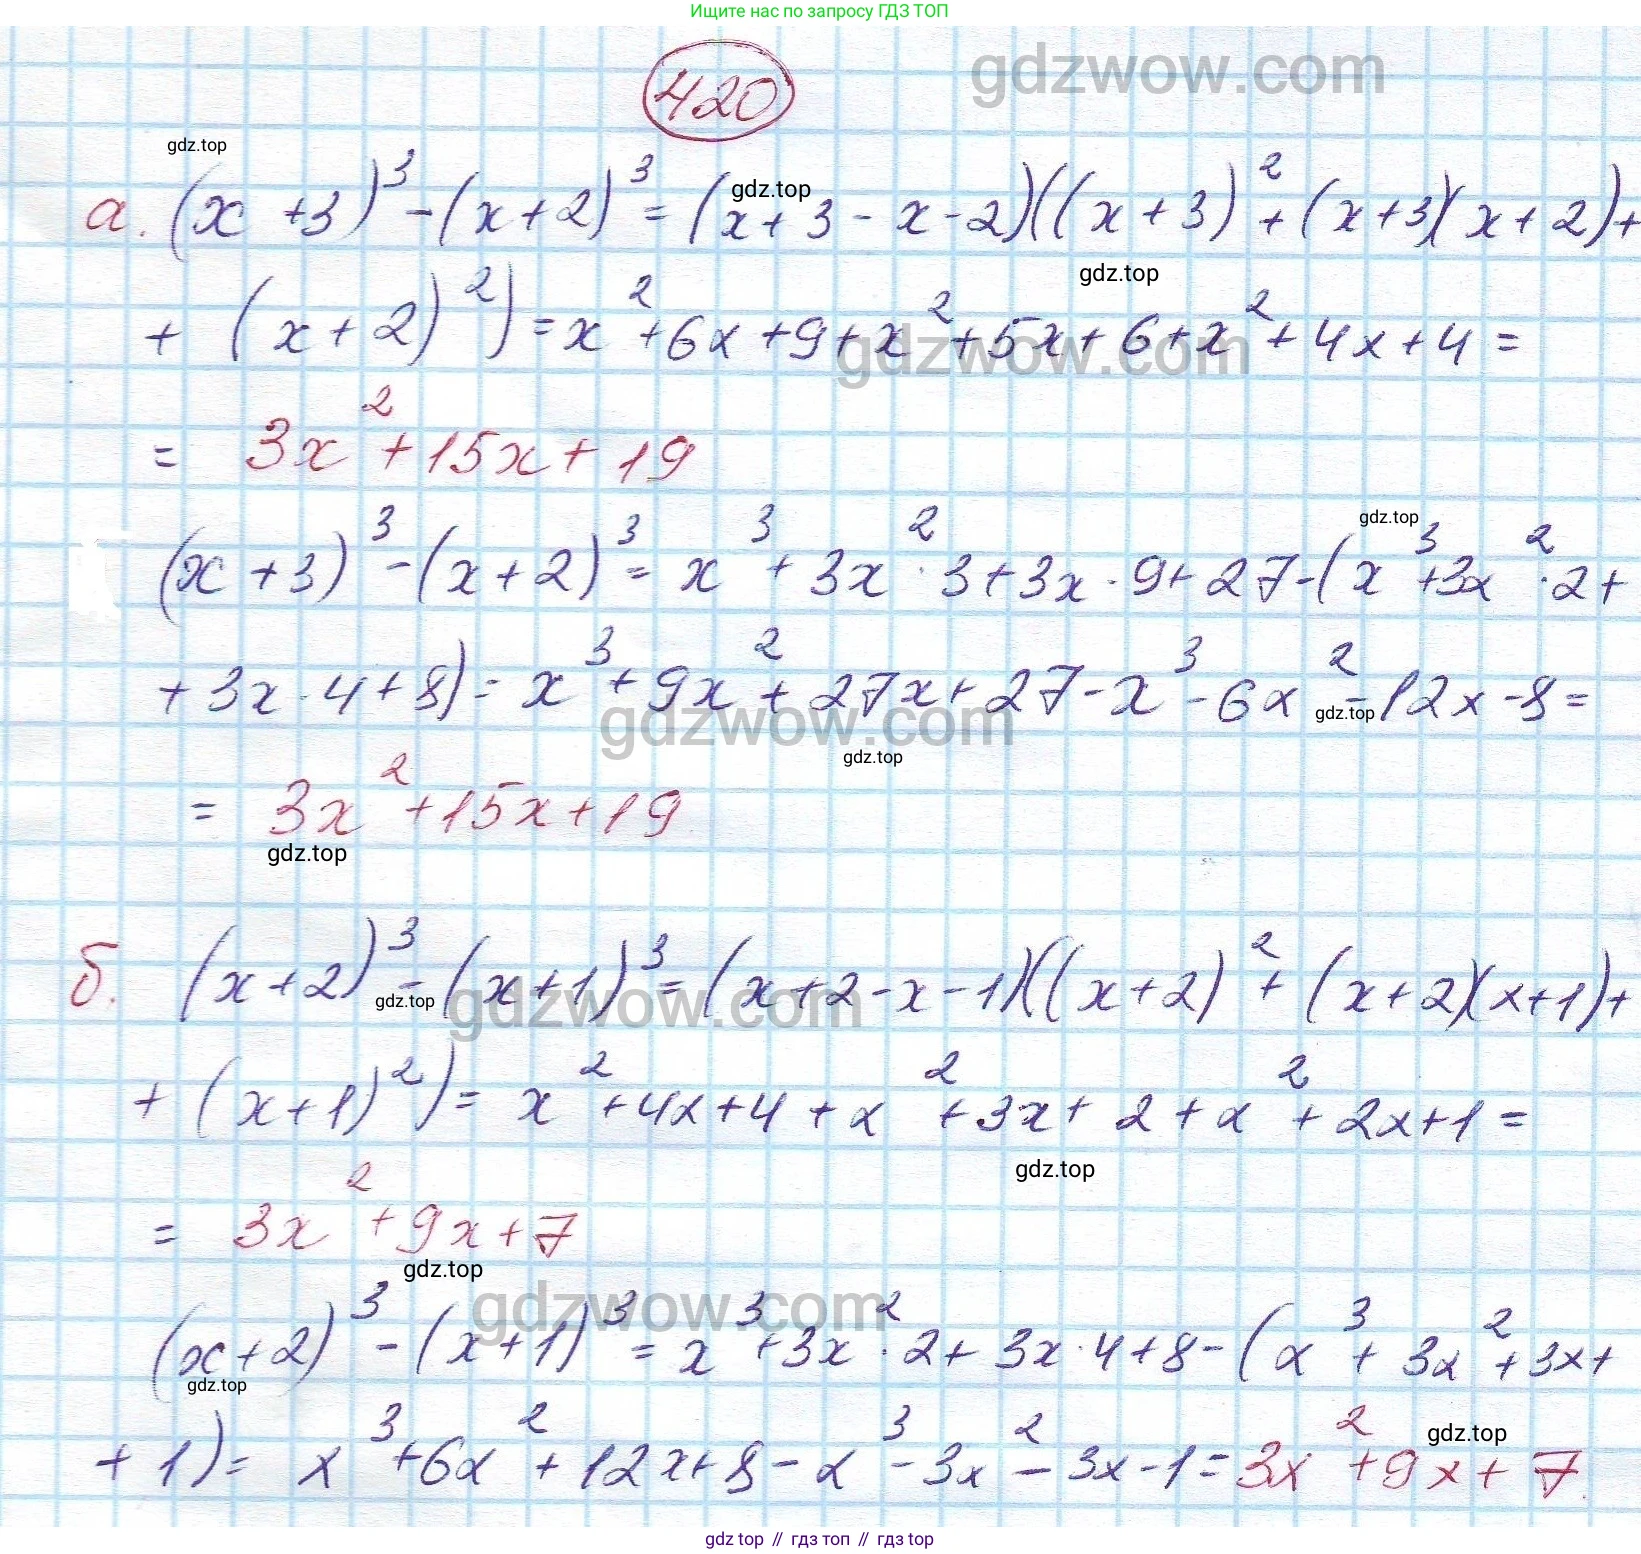 Ищите нас по запросу ГДЗ ТОП
gdzwow.com
420
gdz.top
а. (x+3)³-(x+2)³=(x+3-x-2)((x+3)²+(x+3)(x+2)+
gdz.top
gdz.top
+(x+2)²)=x²+6x+9+x²+5x+6+x²+4x+4=
gdzwow.com
= 3x²+15x+19
gdz.top
(x+3)³-(x+2)³=x³+3x²·3+3x·9+27-(x³+3x²·2+
+3x·4+8)=x³+9x²+27x+27-x³-6x²-12x-8=
gdzwow.com
gdz.top
gdz.top
= 3x²+15x+19
gdz.top
б. (x+2)³-(x+1)³=(x+2-x-1)((x+2)²+(x+2)(x+1)+
gdz.top
gdzwow.com
+(x+1)²)=x²+4x+4+x²+3x+2+x²+2x+1=
gdz.top
= 3x²+9x+7
gdz.top
gdzwow.com
(x+2)³-(x+1)³=x³+3x²·2+3x·4+8-(x³+3x²+3x+
gdz.top
+1)=x³+6x²+12x+8-x³-3x²-3x-1=3x²+9x+7
gdz.top
gdz top // гдз топ // gdz top